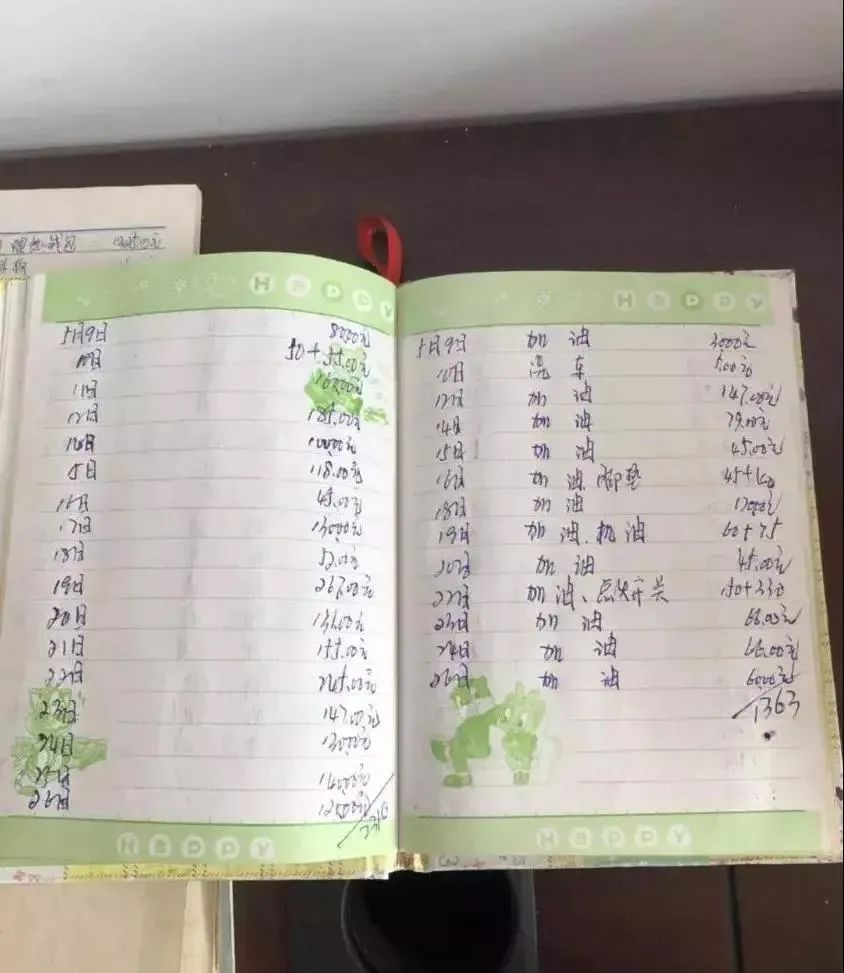 HAPPY
5月9日 8000元
10日 50+55.00元
11日 10000元
12日 185.00元
14日 10000元
15日 118.00元
16日 45.00元
17日 13000元
18日 52.00元
19日 267.00元
20日 136.00元
21日 155.00元
22日 245.00元
23日 147.00元
24日 13000元
25日 14000元
26日 12000元
HAPPY
HAPPY
5月9日 加油 3000元
10日 洗车 5.00元
12日 加油 147.00元
14日 加油 79.00元
15日 加油 45.00元
16日 加油、脚垫 45+40
18日 加油
19日 加油、机油 60+75
20日 加油 45.00元
22日 加油、点火开关 50+330
23日 加油 66.00元
24日 加油 66.00元
26日 加油 6000元
1363
HAPPY